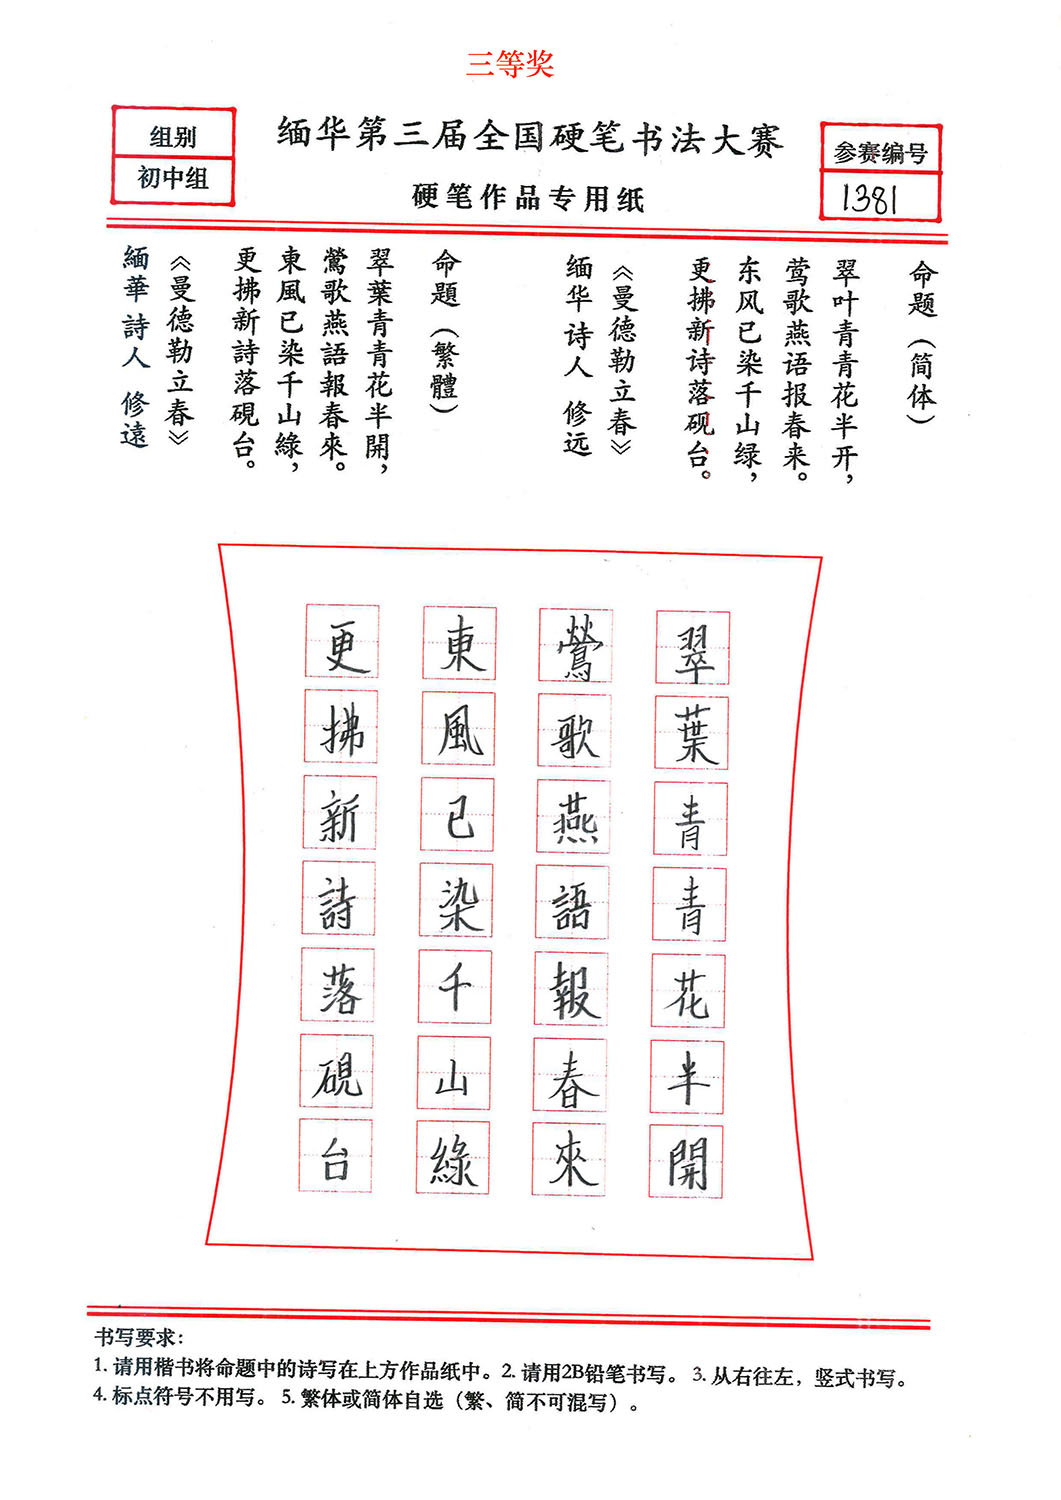 三等奖
组别
初中组
缅华第三届全国硬笔书法大赛
硬笔作品专用纸
参赛编号
1381
命题（简体）
翠叶青青花半开，
莺歌燕语报春来。
东风已染千山绿，
更拂新诗落砚台。
《曼德勒立春》
缅华诗人 修远
命題（繁體）
翠葉青青花半開，
鶯歌燕語報春來。
東風已染千山綠，
更拂新詩落硯台。
《曼德勒立春》
緬華詩人 修遠
翠葉青青花半開
鶯歌燕語報春來
東風已染千山綠
更拂新詩落硯台
书写要求：
1. 请用楷书将命题中的诗写在上方作品纸中。2. 请用2B铅笔书写。 3. 从右往左，竖式书写。
4. 标点符号不用写。 5. 繁体或简体自选（繁、简不可混写）。